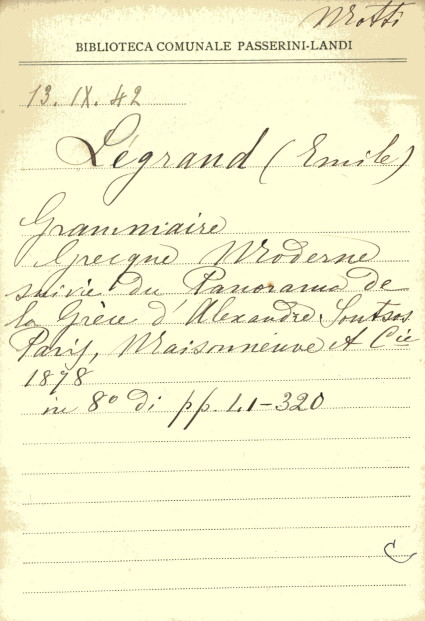 Motti
BIBLIOTECA COMUNALE PASSERINI-LANDI
13. IX. 42
Légrand (Emile)
Grammaire
Grecque Moderne
suivie du Panorama de
la Grèce d'Alexandre Soutsos
Paris, Maisonneuve et Cie
1878
in 8° di pp. LI-320